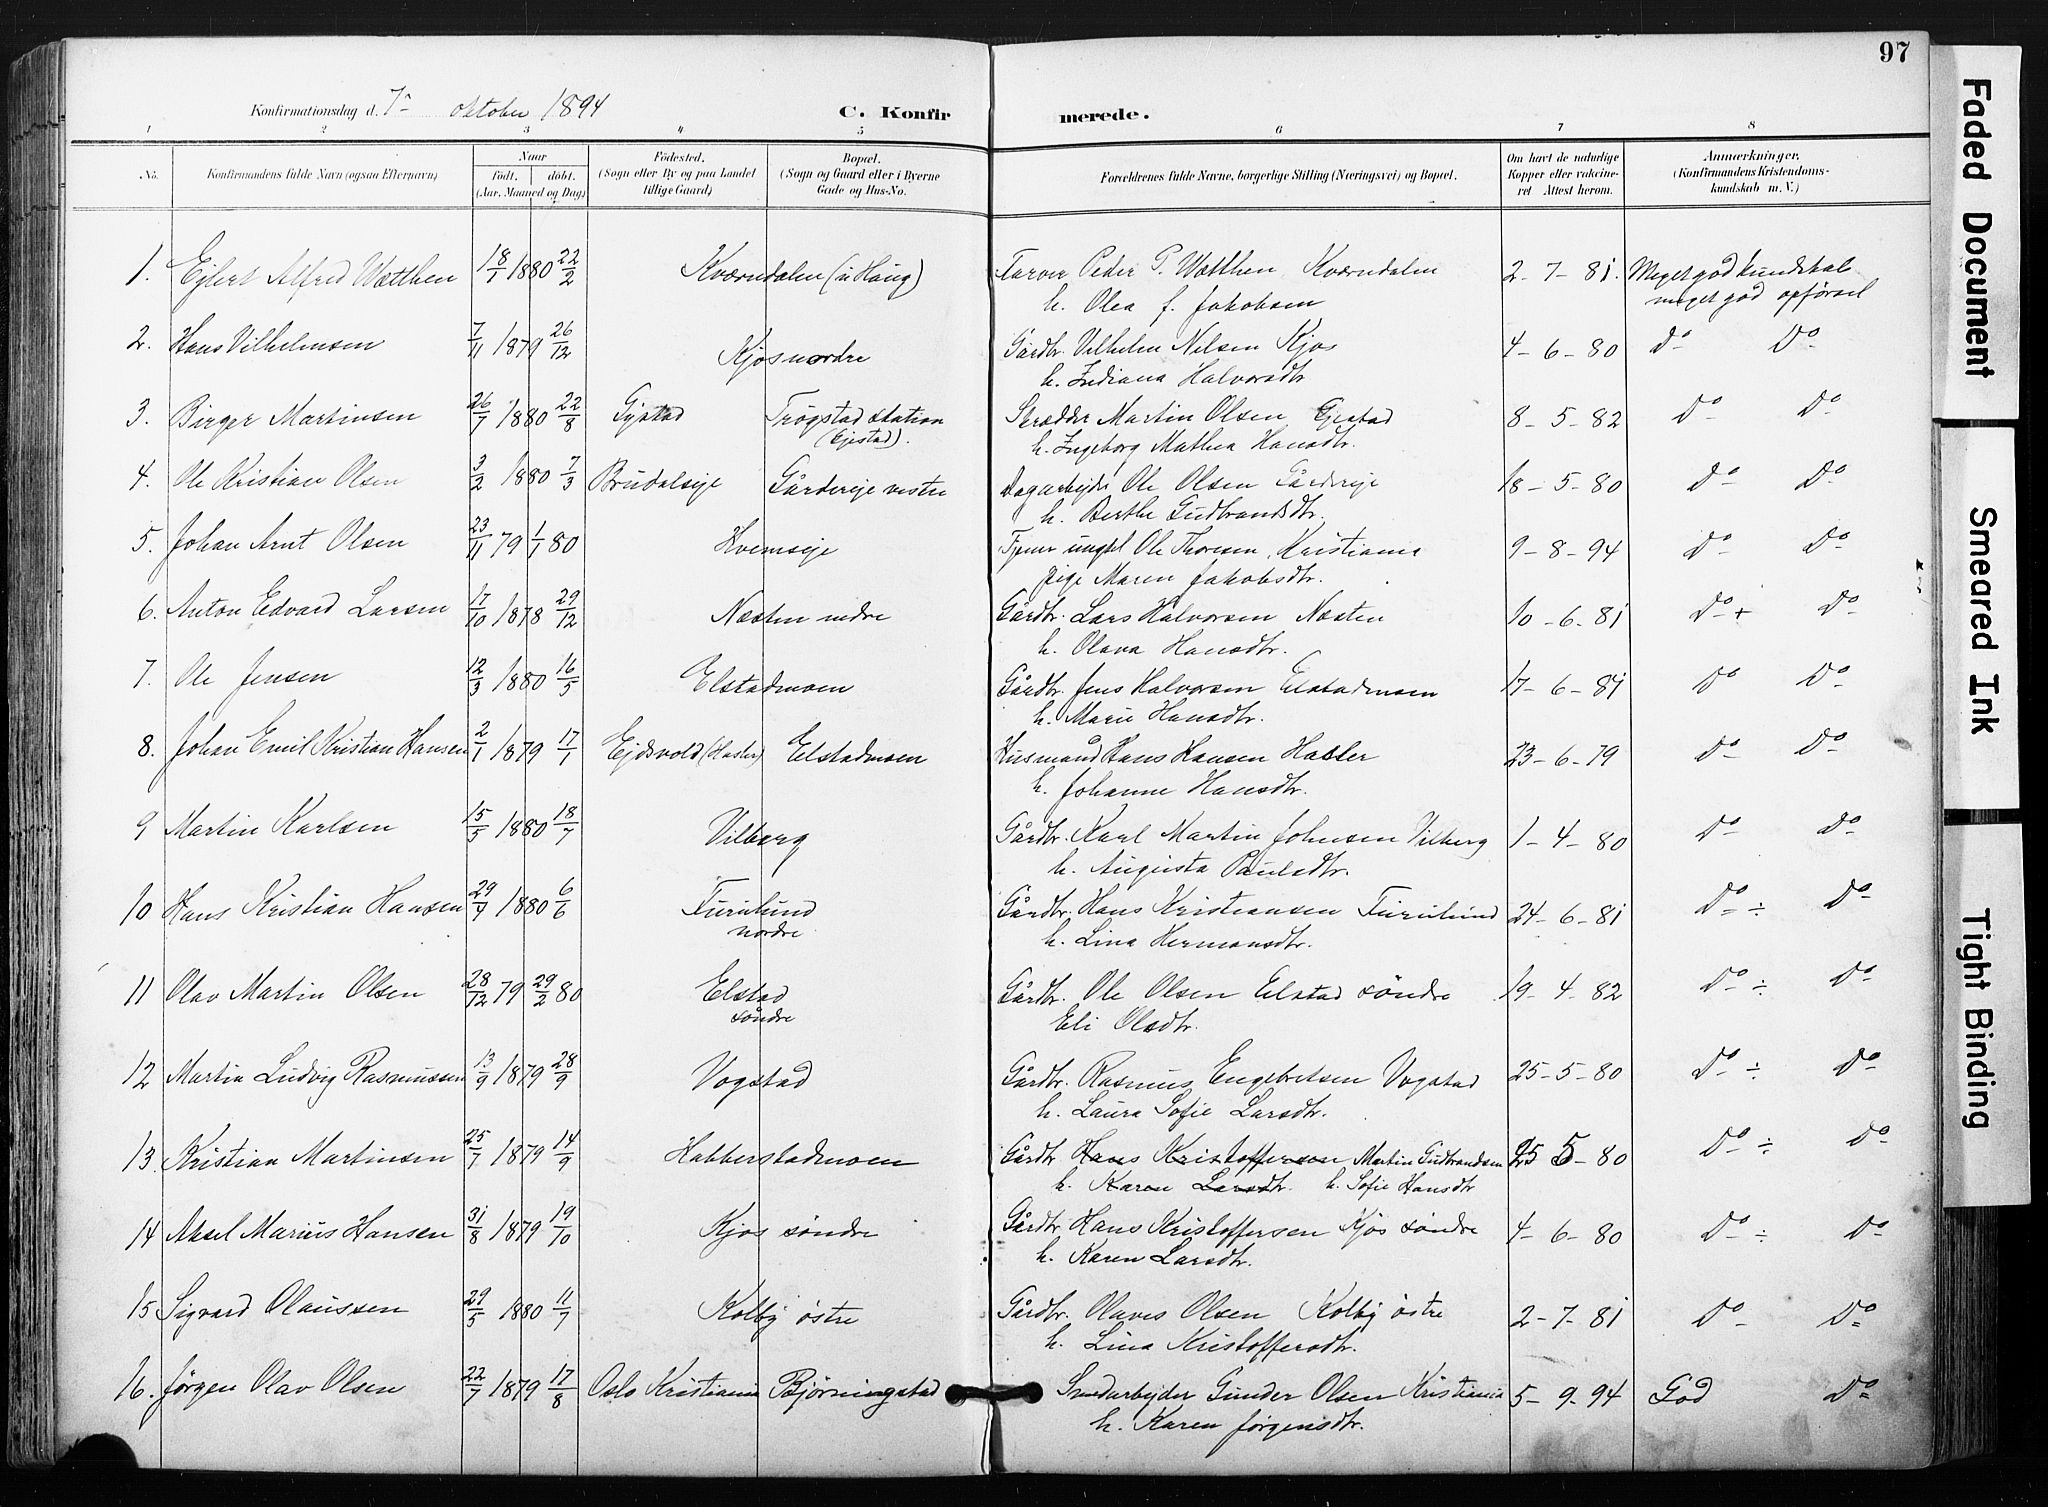 97
Konfirmationsdag d. 7de oktober 1894 C. Konfirmerede.
1 2 3 4 5 6 7 8
No. Konfirmandens fulde Navn (ogsaa Efternavn) Naar født. døbt. (Aar, Maaned og Dag) Fødested. (Sogn eller By og paa Landet tillige Gaard) Bopæl. (Sogn og Gaard eller i Byerne Gade og Hus-No. Forældrenes fulde Navne, borgerlige Stilling (Næringsvei) og Bopæl. Om havt de naturlige Kopper eller vakcineret Attest herom. Anmærkninger. (Konfirmandens Kristendomskundskab m. V.)
1. Ejlert Alfred Wætthen 18/1 1880 22/2 Kværndalen (u Haug) Farver Peder P. Wætthen Kværndalen 2-7-81. Meget god kundskab
h. Olea f. Jakobsen meget god opførsel
2. Hans Vilhelmsen 7/11 1879 26/12 Kjos nordre Gårdbr. Vilhelm Nilsen Kjos 4-6-80 Do Do
h. Indiana Halvorsdtr
3. Birger Martinsen 26/7 1880 22/8 Gjestad Trøgstad station Skrædder Martin Olsen Gjestad 8-5-82 Do Do
(Gjestad). h. Ingeborg Mathea Hansdtr.
4. Ole Kristian Olsen 3/2 1880 7/3 Brudalseje Gårdereje vestre Dagarbejder Ole Olsen Gårdereje 18-5-80 Do Do
h. Berthe Gudbrandsdtr.
5. Johan Arnt Olsen 23/11 79 1/1 80 Hvemseje Tjener ungkl Ole Thoresen, Kristiania 9-8-94 Do Do
pige Maren Jakobsdtr.
6. Anton Edvard Larsen 17/10 1878 29/12 Næsten nedre Gårdbr. Lars Halvorsen Næsten 10-6-81 Do + Do
h. Olava Hansdtr.
7. Ole Jensen 12/3 1880 16/5 Elstadmoen Gårdbr. Jens Halvorsen Elstadmoen 17-6-81 Do Do
h. Marie Hansdtr.
8. Johan Emil Kristian Hansen 2/1 1879 17/1 Ejdsvold (Hasler) Elstadmoen Husmand Hans Hansen Hasler 23-6-79 Do Do
h. Johanne Hansdtr.
9 Martin Karlsen 15/5 1880 18/7 Vilberg Gårdbr. Karl Martin Johnsen Vilberg 1-4-80 Do Do
h. Augusta Paulsdtr.
10 Hans Kristian Hansen 29/4 1880 6/6 Furulund Gårdbr. Hans Kristiansen Furulund 24-6-81 Do ÷ Do
nordre h. Lina Hermansdtr.
11 Olav Martin Olsen 28/12 79 29/2 80 Elstad Gårdbr. Ole Olsen Elstad søndre 19-4-82 Do ÷ Do
søndre Eli Olsdtr.
12 Martin Ludvig Rasmussen 13/9 1879 28/9 Vogstad Gårdbr. Rasmus Engebretsen Vogstad 25-5-80 Do ÷ Do
h. Laura Sofie Larsdtr.
13 Kristian Martinsen 25/7 1879 14/9 Habberstadmoen Gårdbr. Hans Kristoffersen Martin Gudbrandsen 25 5-80 Do ÷ Do
h. Karen Larsdtr. h. Sofie Hansdtr
14 Aksel Marius Hansen 31/8 1879 19/10 Kjos søndre Gårdbr. Hans Kristoffersen Kjos søndre 4-6-80 Do ÷ Do
h. Karen Larsdtr.
15 Sigvard Olaussen 29/5 1880 11/7 Kolby østre Gårdbr. Olaves Olsen Kolby østre 2-7-81 Do Do
h. Lina Kristoffersdtr.
16. Jørgen Olav Olsen 22/7 1879 17/8 Oslo Kristiania Bjørningstad Smedarbejder Gunder Olsen Kristiania 5-9-94 God Do
h. Karen Jørgensdtr.
Faded Document
Smeared Ink
Tight Binding